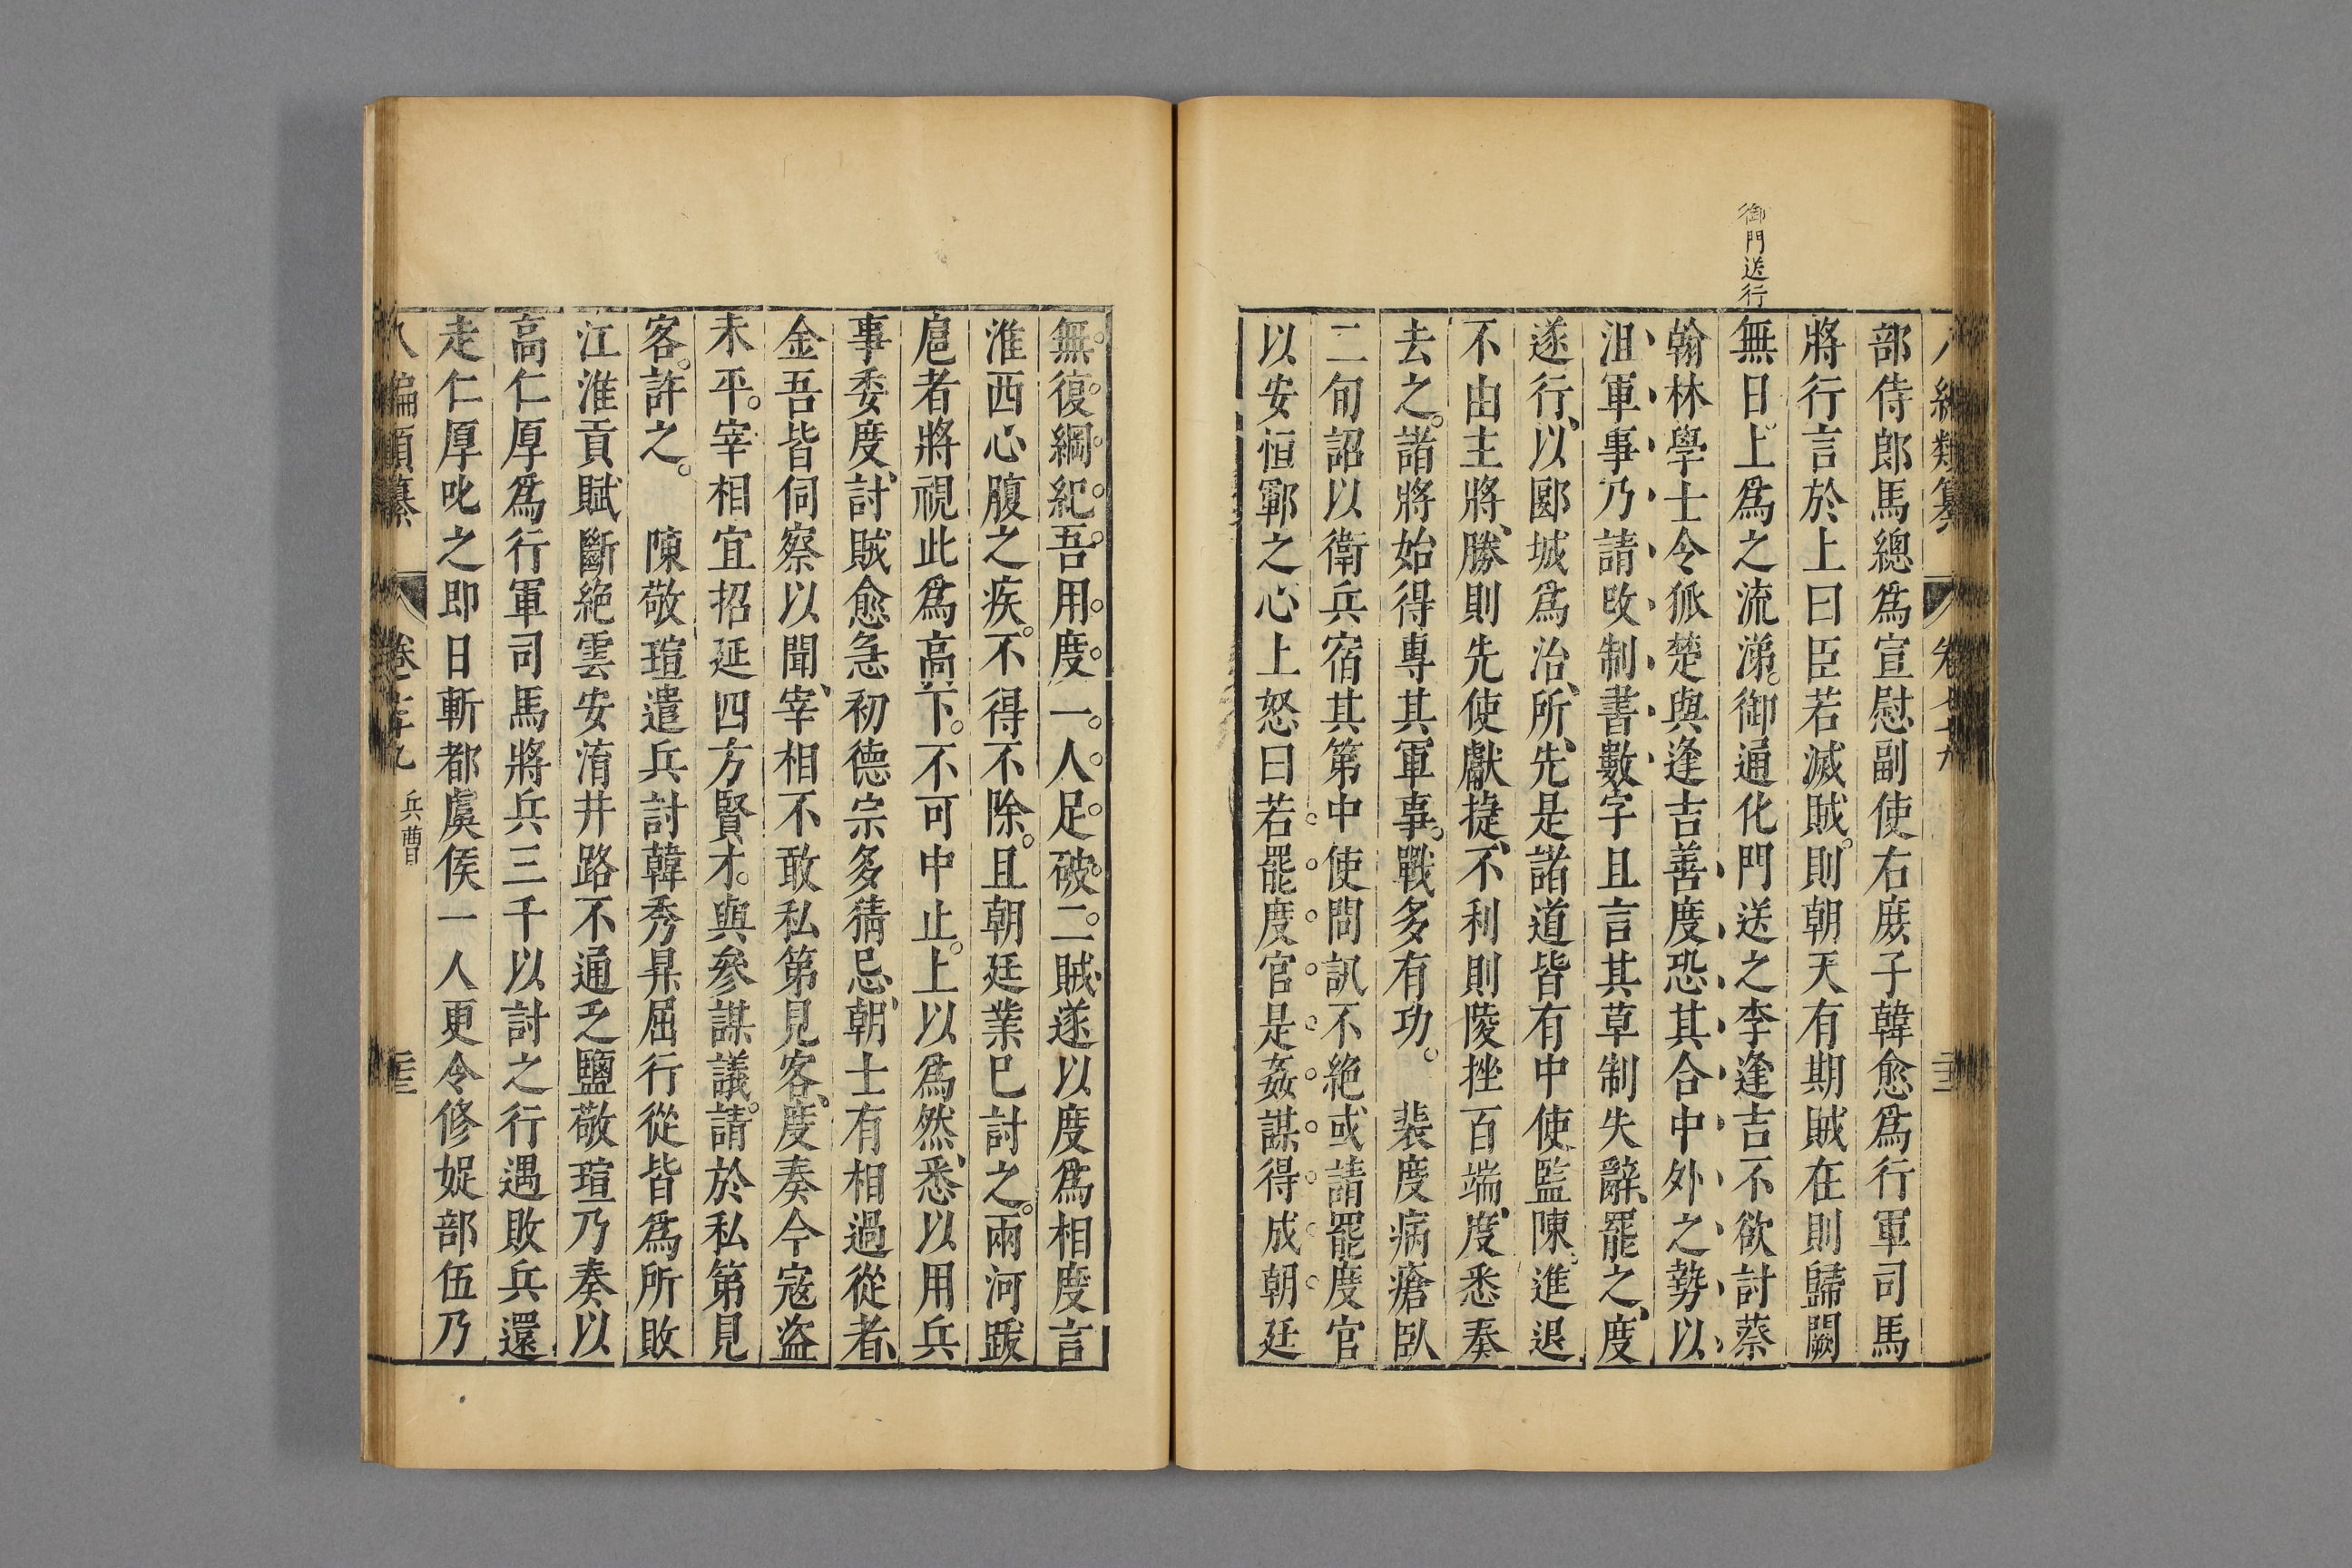 御門送行
部侍郎馬總爲宣慰副使右庻子韓愈爲行軍司馬
將行言於上曰臣若滅賊則朝天有期賊在則歸闕
無日上爲之流涕御通化門送之李逢吉不欲討蔡
翰林學士令狐楚與逢吉善度恐其合中外之勢以
沮軍事乃請改制書數字且言其草制失辭罷之度
遂行以郾城爲治所先是諸道皆有中使監陳進退
不由主將勝則先使獻捷不利則陵挫百端度悉奏
去之諸將始得專其軍事戰多有功　裴度病瘡臥
二旬詔以衛兵宿其第中使問訊不絶或請罷度官
以安恒鄆之心上怒曰若罷度官是姦謀得成朝廷
無復綱紀吾用度一人足破二賊遂以度爲相度言
淮西心腹之疾不得不除且朝廷業已討之兩河跋
扈者將視此爲高下不可中止上以爲然悉以用兵
事委度討賊愈急初德宗多猜忌朝士有相過從者
金吾皆伺察以聞宰相不敢私第見客度奏今寇盜
未平宰相宜招延四方賢才與參謀議請於私第見
客許之　陳敬瑄遣兵討韓秀昇屈行從皆爲所敗
江淮貢賦斷絶雲安淯井路不通乏鹽敬瑄乃奏以
高仁厚爲行軍司馬將兵三千以討之行遇敗兵還
走仁厚叱之即日斬都虞侯一人更令修娖部伍乃
八編類纂　卷　兵曹